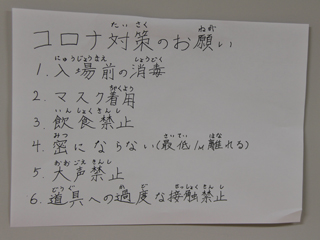 コロナ対策のお願い
1. 入場前の消毒
2. マスク着用
3. 飲食禁止
4. 密にならない(最低1M離れる)
5. 大声禁止
6. 道具への過度な接触禁止